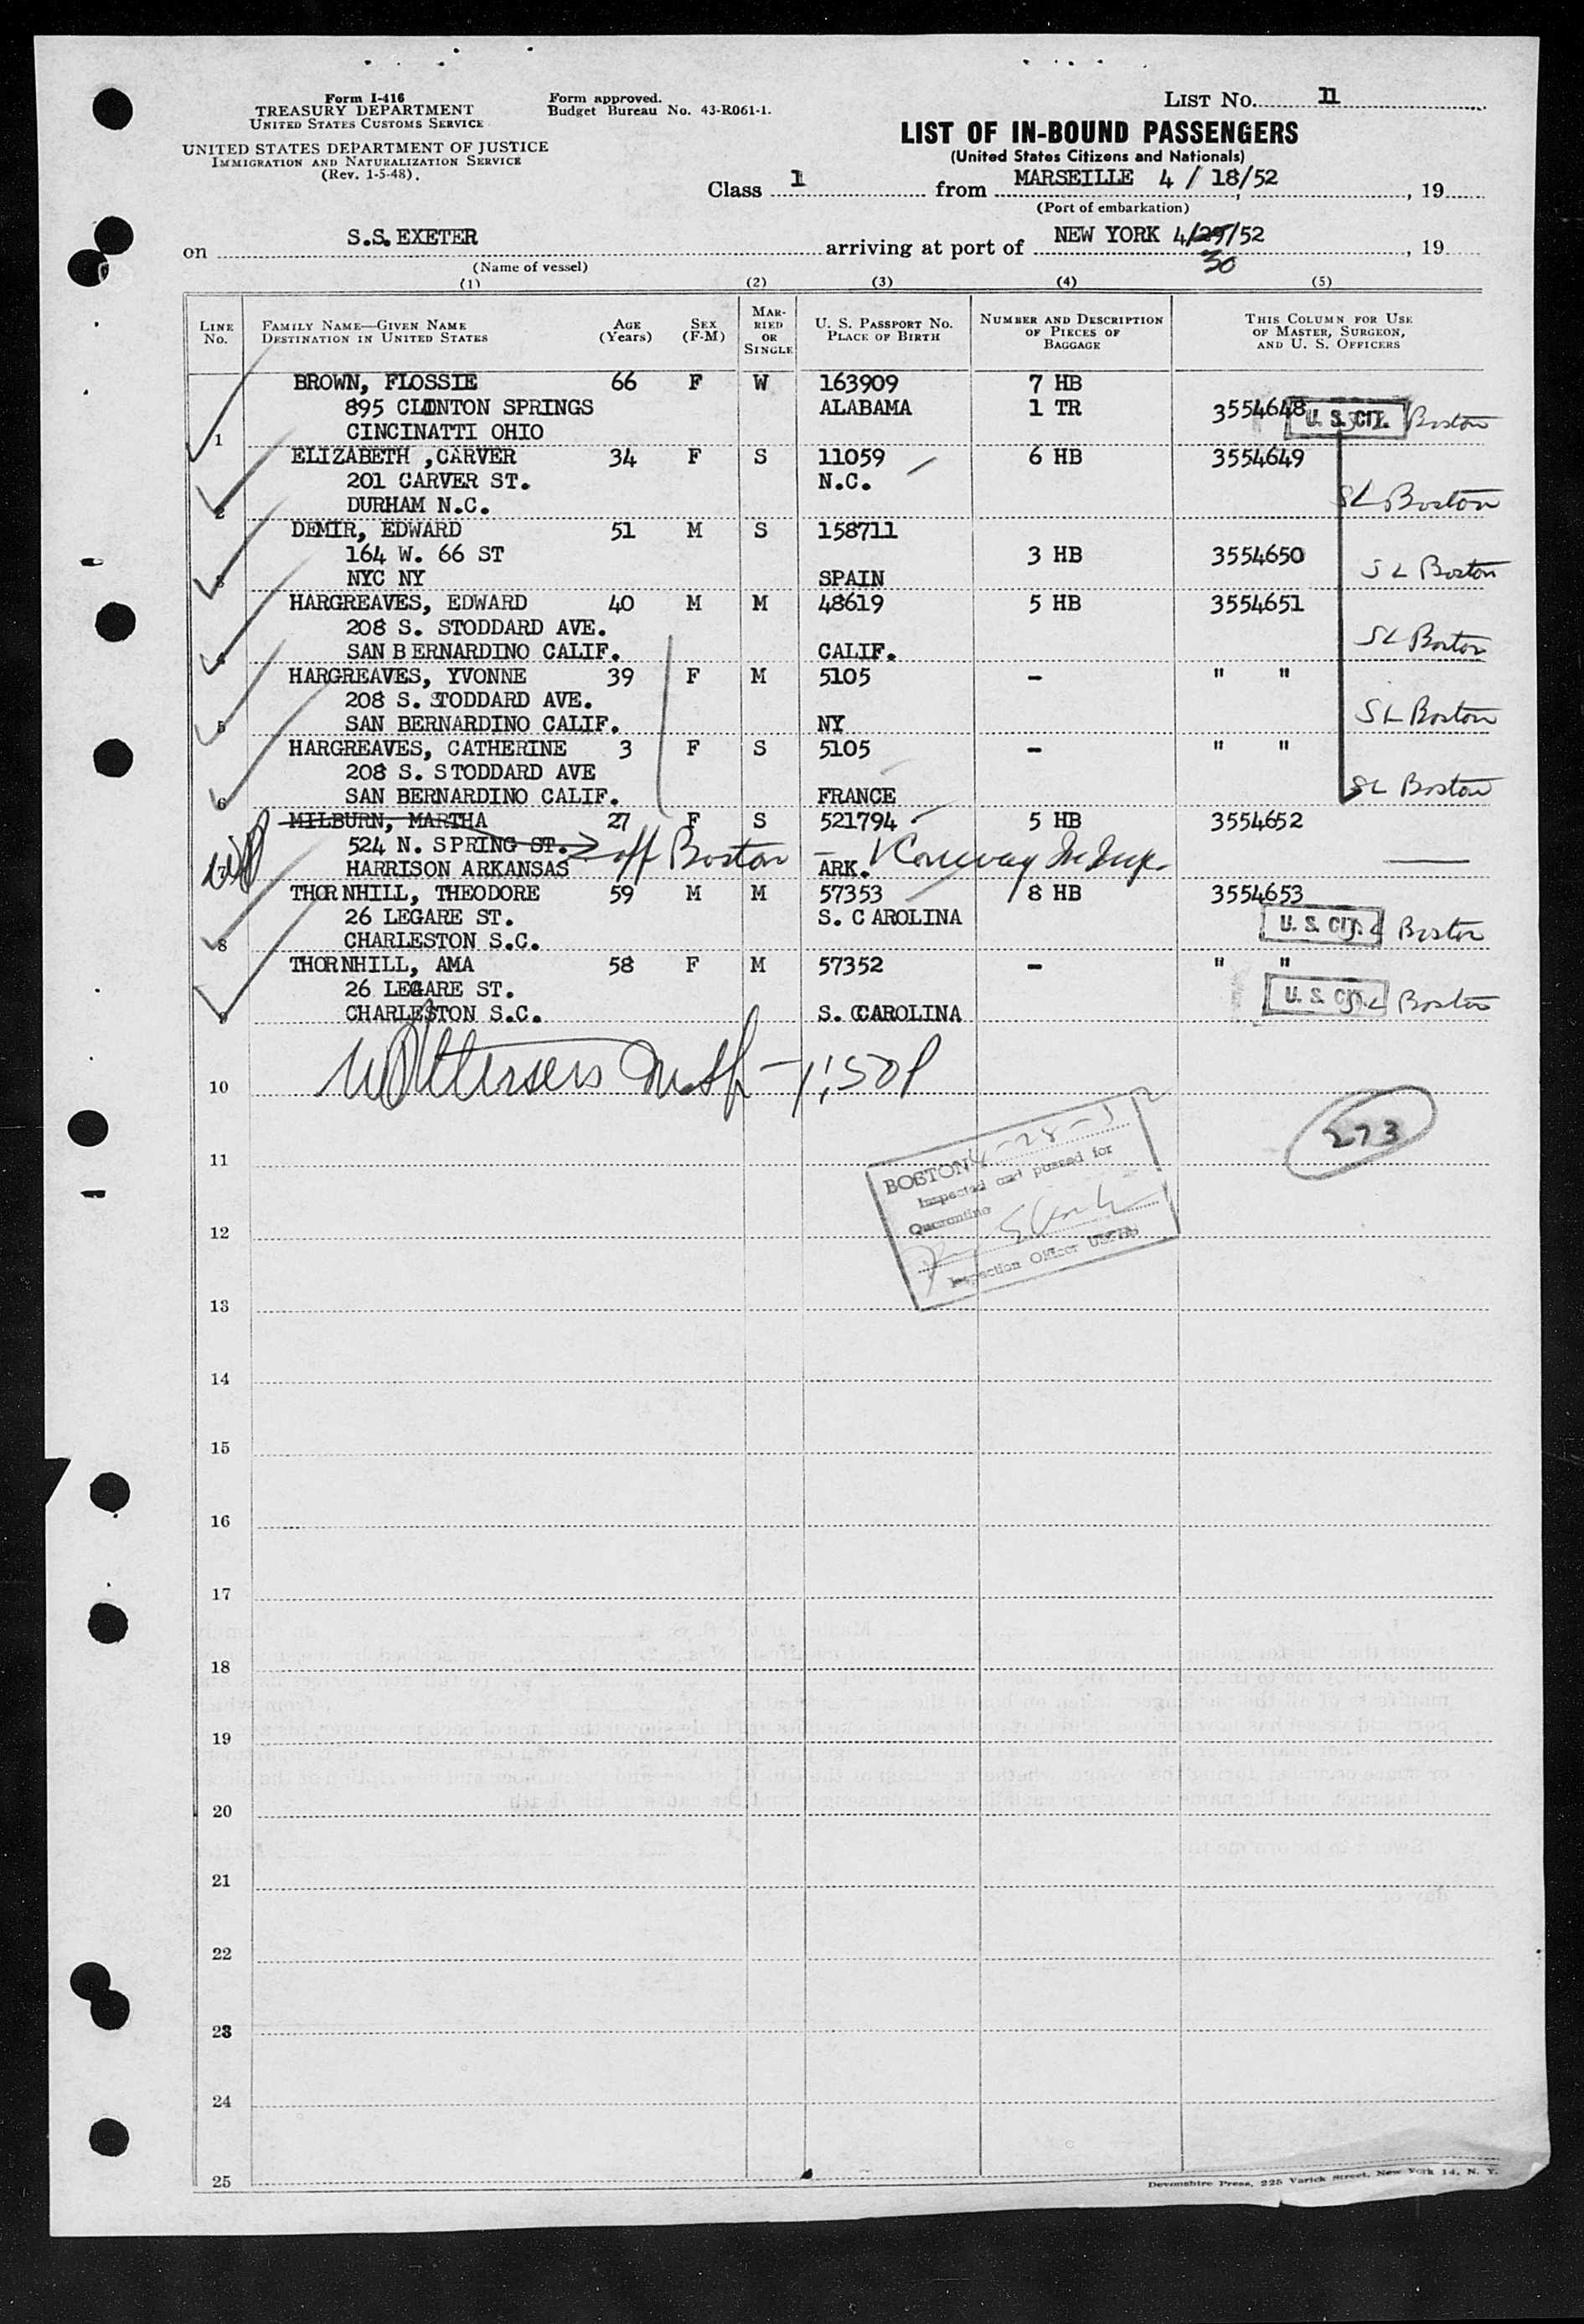 Form I-416
TREASURY DEPARTMENT
UNITED STATES CUSTOMS SERVICE
UNITED STATES DEPARTMENT OF JUSTICE
IMMIGRATION AND NATURALIZATION SERVICE
(Rev. 1-5-48).
Form approved.
Budget Bureau No. 43-R061-1.
LIST NO. 11
LIST OF IN-BOUND PASSENGERS
(United States Citizens and Nationals)
Class 1 from MARSEILLE 4 / 18/52, 19
(Port of embarkation)
on S.S. EXETER arriving at port of NEW YORK 4/29/52, 19
30
(Name of vessel)
(1) (2) (3) (4) (5)
LINE No. FAMILY NAME—GIVEN NAME DESTINATION IN UNITED STATES AGE (Years) SEX (F-M) MARRIED OR SINGLE U. S. PASSPORT NO. PLACE OF BIRTH NUMBER AND DESCRIPTION OF PIECES OF BAGGAGE THIS COLUMN FOR USE OF MASTER, SURGEON, AND U. S. OFFICERS
BROWN, FLOSSIE 66 F W 163909 7 HB
895 CLINTON SPRINGS ALABAMA 1 TR 3554648 U. S. CIT. Boston
1 CINCINATTI OHIO
ELIZABETH ,CARVER 34 F S 11059 6 HB 3554649
201 CARVER ST. N.C.
2 DURHAM N.C. SL Boston
DEMIR, EDWARD 51 M S 158711
164 W. 66 ST 3 HB 3554650
3 NYC NY SPAIN SL Boston
HARGREAVES, EDWARD 40 M M 48619 5 HB 3554651
208 S. STODDARD AVE.
4 SAN BERNARDINO CALIF. CALIF. SL Boston
HARGREAVES, YVONNE 39 F M 5105 - " "
208 S. STODDARD AVE.
5 SAN BERNARDINO CALIF. NY SL Boston
HARGREAVES, CATHERINE 3 F S 5105 - " "
208 S. STODDARD AVE
6 SAN BERNARDINO CALIF. FRANCE SL Boston
MILBURN, MARTHA 27 F S 521794 5 HB 3554652
524 N. SPRING ST. off Boston
HARRISON ARKANSAS ARK.
THORNHILL, THEODORE 59 M M 57353 8 HB 3554653
26 LEGARE ST. S. CAROLINA U. S. CIT. Boston
8 CHARLESTON S.C.
THORNHILL, AMA 58 F M 57352 - " "
26 LEGARE ST. U. S. CIT. Boston
9 CHARLESTON S.C. S. CAROLINA
10
273
11
BOSTON 4-28-52
Inspected and passed for
Quarantine
Inspection Officer USPHS
12
13
14
15
16
17
18
19
20
21
22
23
24
25
Devonshire Press, 225 Varick Street, New York 14, N. Y.